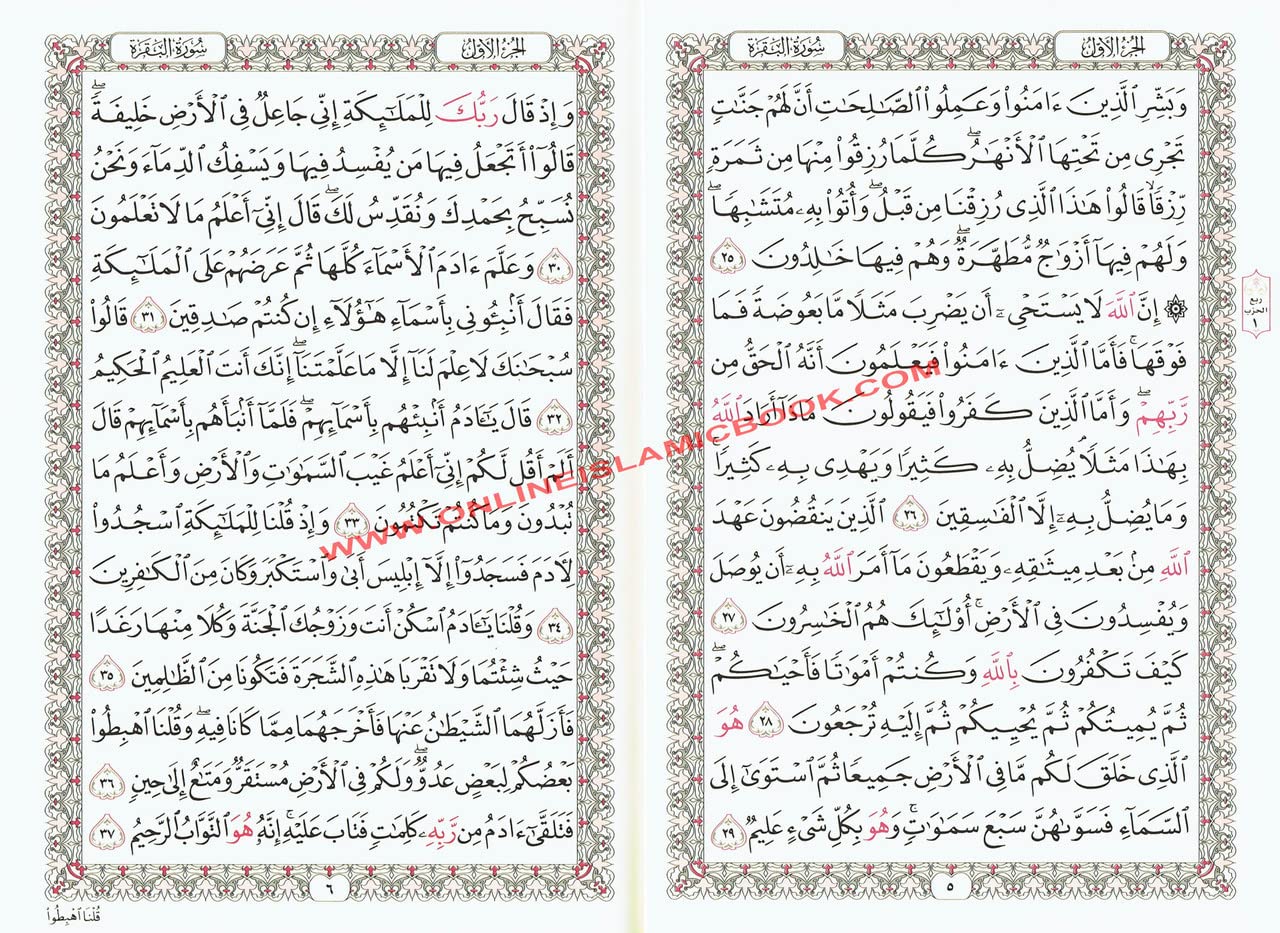 سُورَةُ البَقَرَةِ
الجُزْءُ الأَوَّلُ
وَبَشِّرِ الَّذِينَ ءَامَنُوا۟ وَعَمِلُوا۟ الصَّـٰلِحَـٰتِ أَنَّ لَهُمْ جَنَّـٰتٍ
تَجْرِى مِن تَحْتِهَا ٱلْأَنْهَـٰرُ ۖ كُلَّمَا رُزِقُوا۟ مِنْهَا مِن ثَمَرَةٍ
رِّزْقًا ۙ قَالُوا۟ هَـٰذَا ٱلَّذِى رُزِقْنَا مِن قَبْلُ ۖ وَأُتُوا۟ بِهِۦ مُتَشَـٰبِهًا ۖ
وَلَهُمْ فِيهَآ أَزْوَٰجٌ مُّطَهَّرَةٌ ۖ وَهُمْ فِيهَا خَـٰلِدُونَ ٢٥
۞ إِنَّ ٱللَّهَ لَا يَسْتَحْىِۦٓ أَن يَضْرِبَ مَثَلًا مَّا بَعُوضَةً فَمَا
فَوْقَهَا ۚ فَأَمَّا ٱلَّذِينَ ءَامَنُوا۟ فَيَعْلَمُونَ أَنَّهُ ٱلْحَقُّ مِن
رَّبِّهِمْ ۖ وَأَمَّا ٱلَّذِينَ كَفَرُوا۟ فَيَقُولُونَ مَاذَآ أَرَادَ ٱللَّهُ
بِهَـٰذَا مَثَلًا ۘ يُضِلُّ بِهِۦ كَثِيرًا وَيَهْدِى بِهِۦ كَثِيرًا ۚ
وَمَا يُضِلُّ بِهِۦٓ إِلَّا ٱلْفَـٰسِقِينَ ٢٦ ٱلَّذِينَ يَنقُضُونَ عَهْدَ
ٱللَّهِ مِنۢ بَعْدِ مِيثَـٰقِهِۦ وَيَقْطَعُونَ مَآ أَمَرَ ٱللَّهُ بِهِۦٓ أَن يُوصَلَ
وَيُفْسِدُونَ فِى ٱلْأَرْضِ ۚ أُو۟لَـٰٓئِكَ هُمُ ٱلْخَـٰسِرُونَ ٢٧
كَيْفَ تَكْفُرُونَ بِٱللَّهِ وَكُنتُمْ أَمْوَٰتًا فَأَحْيَـٰكُمْ ۖ
ثُمَّ يُمِيتُكُمْ ثُمَّ يُحْيِيكُمْ ثُمَّ إِلَيْهِ تُرْجَعُونَ ٢٨ هُوَ
ٱلَّذِى خَلَقَ لَكُم مَّا فِى ٱلْأَرْضِ جَمِيعًا ثُمَّ ٱسْتَوَىٰٓ إِلَى
ٱلسَّمَآءِ فَسَوَّىٰهُنَّ سَبْعَ سَمَـٰوَٰتٍ ۚ وَهُوَ بِكُلِّ شَىْءٍ عَلِيمٌ ٢٩
٥
ربع
الحزب
١
سُورَةُ البَقَرَةِ
الجُزْءُ الأَوَّلُ
وَإِذْ قَالَ رَبُّكَ لِلْمَلَـٰٓئِكَةِ إِنِّى جَاعِلٌ فِى ٱلْأَرْضِ خَلِيفَةً ۖ
قَالُوٓا۟ أَتَجْعَلُ فِيهَا مَن يُفْسِدُ فِيهَا وَيَسْفِكُ ٱلدِّمَآءَ وَنَحْنُ
نُسَبِّحُ بِحَمْدِكَ وَنُقَدِّسُ لَكَ ۖ قَالَ إِنِّىٓ أَعْلَمُ مَا لَا تَعْلَمُونَ
٣٠ وَعَلَّمَ ءَادَمَ ٱلْأَسْمَآءَ كُلَّهَا ثُمَّ عَرَضَهُمْ عَلَى ٱلْمَلَـٰٓئِكَةِ
فَقَالَ أَنۢبِـُٔونِى بِأَسْمَآءِ هَـٰٓؤُلَآءِ إِن كُنتُمْ صَـٰدِقِينَ ٣١ قَالُوا۟
سُبْحَـٰنَكَ لَا عِلْمَ لَنَآ إِلَّا مَا عَلَّمْتَنَآ ۖ إِنَّكَ أَنتَ ٱلْعَلِيمُ ٱلْحَكِيمُ
٣٢ قَالَ يَـٰٓـَٔادَمُ أَنۢبِئْهُم بِأَسْمَآئِهِمْ ۖ فَلَمَّآ أَنۢبَأَهُم بِأَسْمَآئِهِمْ قَالَ
أَلَمْ أَقُل لَّكُمْ إِنِّىٓ أَعْلَمُ غَيْبَ ٱلسَّمَـٰوَٰتِ وَٱلْأَرْضِ وَأَعْلَمُ مَا
تُبْدُونَ وَمَا كُنتُمْ تَكْتُمُونَ ٣٣ وَإِذْ قُلْنَا لِلْمَلَـٰٓئِكَةِ ٱسْجُدُوا۟
لِـَٔادَمَ فَسَجَدُوٓا۟ إِلَّآ إِبْلِيسَ أَبَىٰ وَٱسْتَكْبَرَ وَكَانَ مِنَ ٱلْكَـٰفِرِينَ
٣٤ وَقُلْنَا يَـٰٓـَٔادَمُ ٱسْكُنْ أَنتَ وَزَوْجُكَ ٱلْجَنَّةَ وَكُلَا مِنْهَا رَغَدًا
حَيْثُ شِئْتُمَا وَلَا تَقْرَبَا هَـٰذِهِ ٱلشَّجَرَةَ فَتَكُونَا مِنَ ٱلظَّـٰلِمِينَ ٣٥
فَأَزَلَّهُمَا ٱلشَّيْطَـٰنُ عَنْهَا فَأَخْرَجَهُمَا مِمَّا كَانَا فِيهِ ۖ وَقُلْنَا ٱهْبِطُوا۟
بَعْضُكُمْ لِبَعْضٍ عَدُوٌّ ۖ وَلَكُمْ فِى ٱلْأَرْضِ مُسْتَقَرٌّ وَمَتَـٰعٌ إِلَىٰ حِينٍ ٣٦
فَتَلَقَّىٰٓ ءَادَمُ مِن رَّبِّهِۦ كَلِمَـٰتٍ فَتَابَ عَلَيْهِ ۚ إِنَّهُۥ هُوَ ٱلتَّوَّابُ ٱلرَّحِيمُ ٣٧
٦
قُلْنَا ٱهْبِطُوا۟
WWW.ONLINEISLAMICBOOK.COM